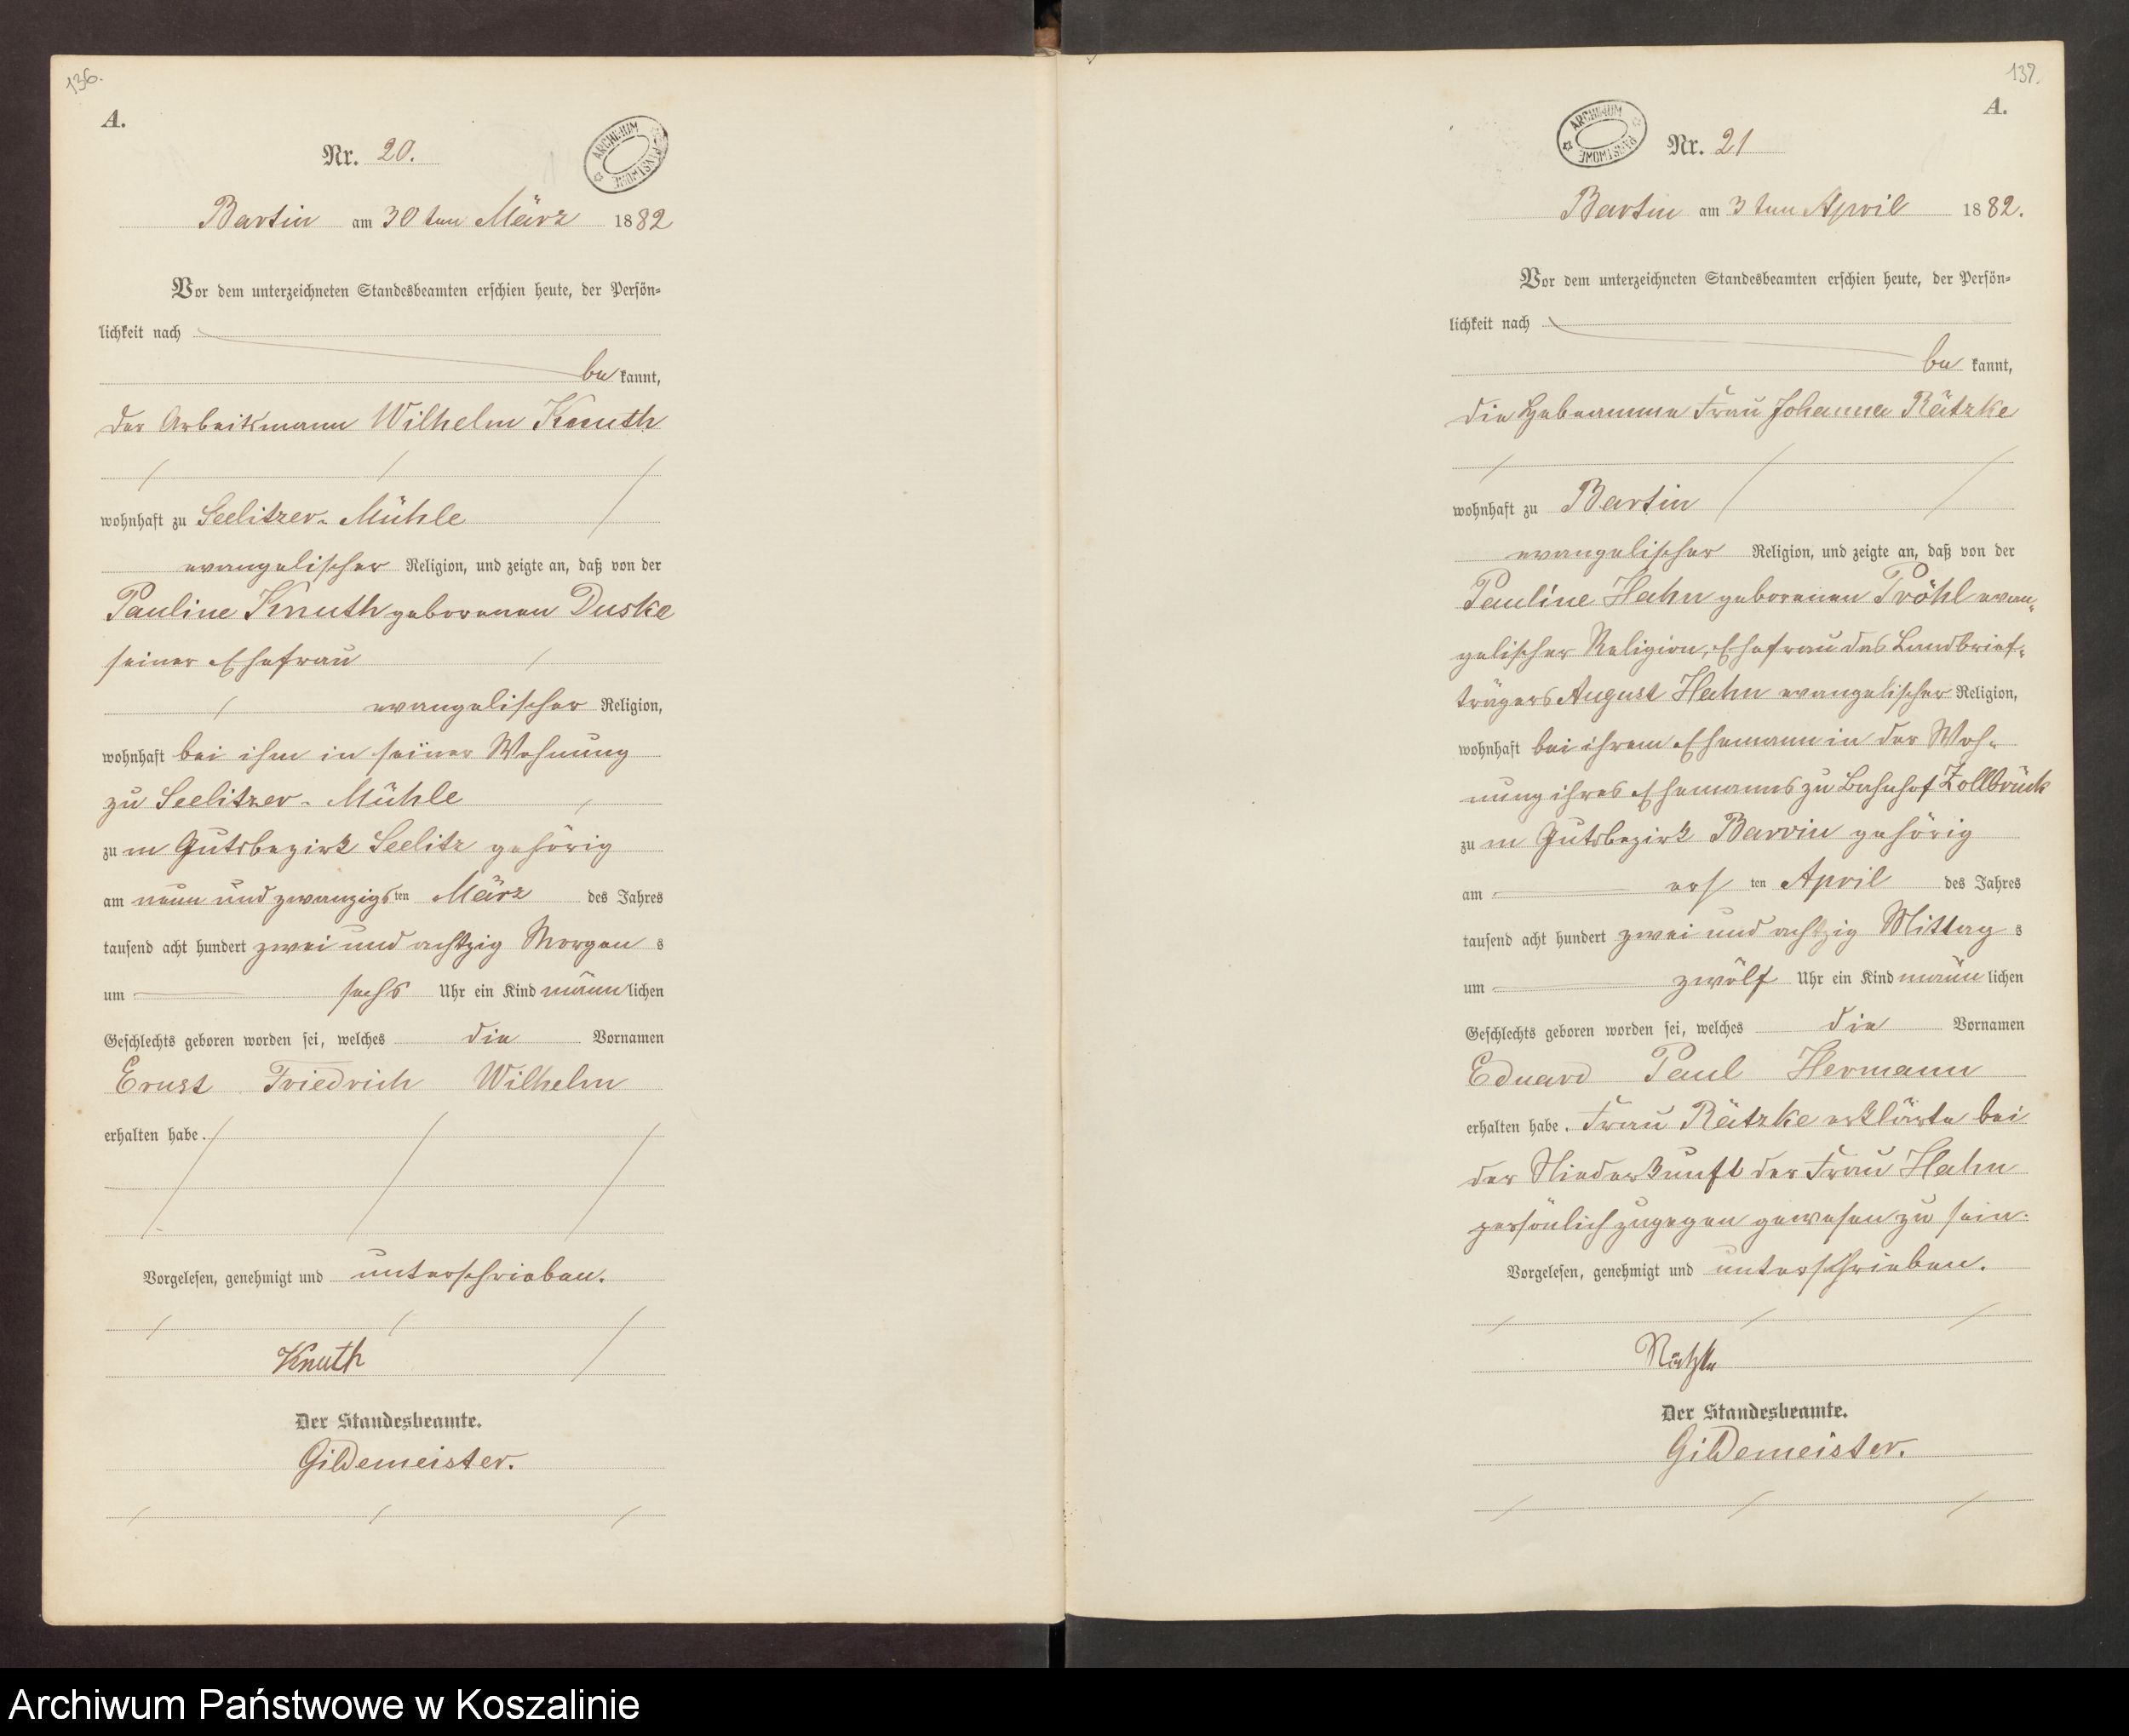 136.
A.
ARCHIWUM PAŃSTWOWE
Nr. 20.
Bartin am 30 ten März 1882
Vor dem unterzeichneten Standesbeamten erschien heute, der Persön-
lichkeit nach
be kannt,
der Arbeitsmann Wilhelm Knuth
wohnhaft zu Seelitzer-Mühle
evangelischer Religion, und zeigte an, daß von der
Pauline Knuth geborenen Duske
seiner Ehefrau
evangelischer Religion,
wohnhaft bei ihm in seiner Wohnung
zu Seelitzer-Mühle
zu m Gutsbezirk Seelitz gehörig
am neun und zwanzigsten März des Jahres
tausend acht hundert zwei und achtzig Morgen s
um sechs Uhr ein Kind männlichen
Geschlechts geboren worden sei, welches die Vornamen
Ernst Friedrich Wilhelm
erhalten habe.
Vorgelesen, genehmigt und unterschrieben.
Knuth
Der Standesbeamte.
Gildemeister.
137.
A.
ARCHIWUM PAŃSTWOWE
Nr. 21
Bartin am 3 ten April 1882.
Vor dem unterzeichneten Standesbeamten erschien heute, der Persön-
lichkeit nach
be kannt,
die Hebeamme Frau Johanna Rätzke
wohnhaft zu Bartin
evangelischer Religion, und zeigte an, daß von der
Pauline Hahn geborenen Pröhl evan-
gelischer Religion, Ehefrau des Landbrief-
trägers August Hahn evangelischer Religion,
wohnhaft bei ihrem Ehemann in der Woh-
nung ihres Ehemanns zu Bahnhof Zollbrück
zu m Gutsbezirk Barvin gehörig
am ersten April des Jahres
tausend acht hundert zwei und achtzig Mittag s
um zwölf Uhr ein Kind männlichen
Geschlechts geboren worden sei, welches die Vornamen
Eduard Paul Hermann
erhalten habe. Frau Rätzke erklärte bei
der Niederkunft der Frau Hahn
persönlich zugegen gewesen zu sein.
Vorgelesen, genehmigt und unterschrieben.
Rätzke
Der Standesbeamte.
Gildemeister.
Archiwum Państwowe w Koszalinie